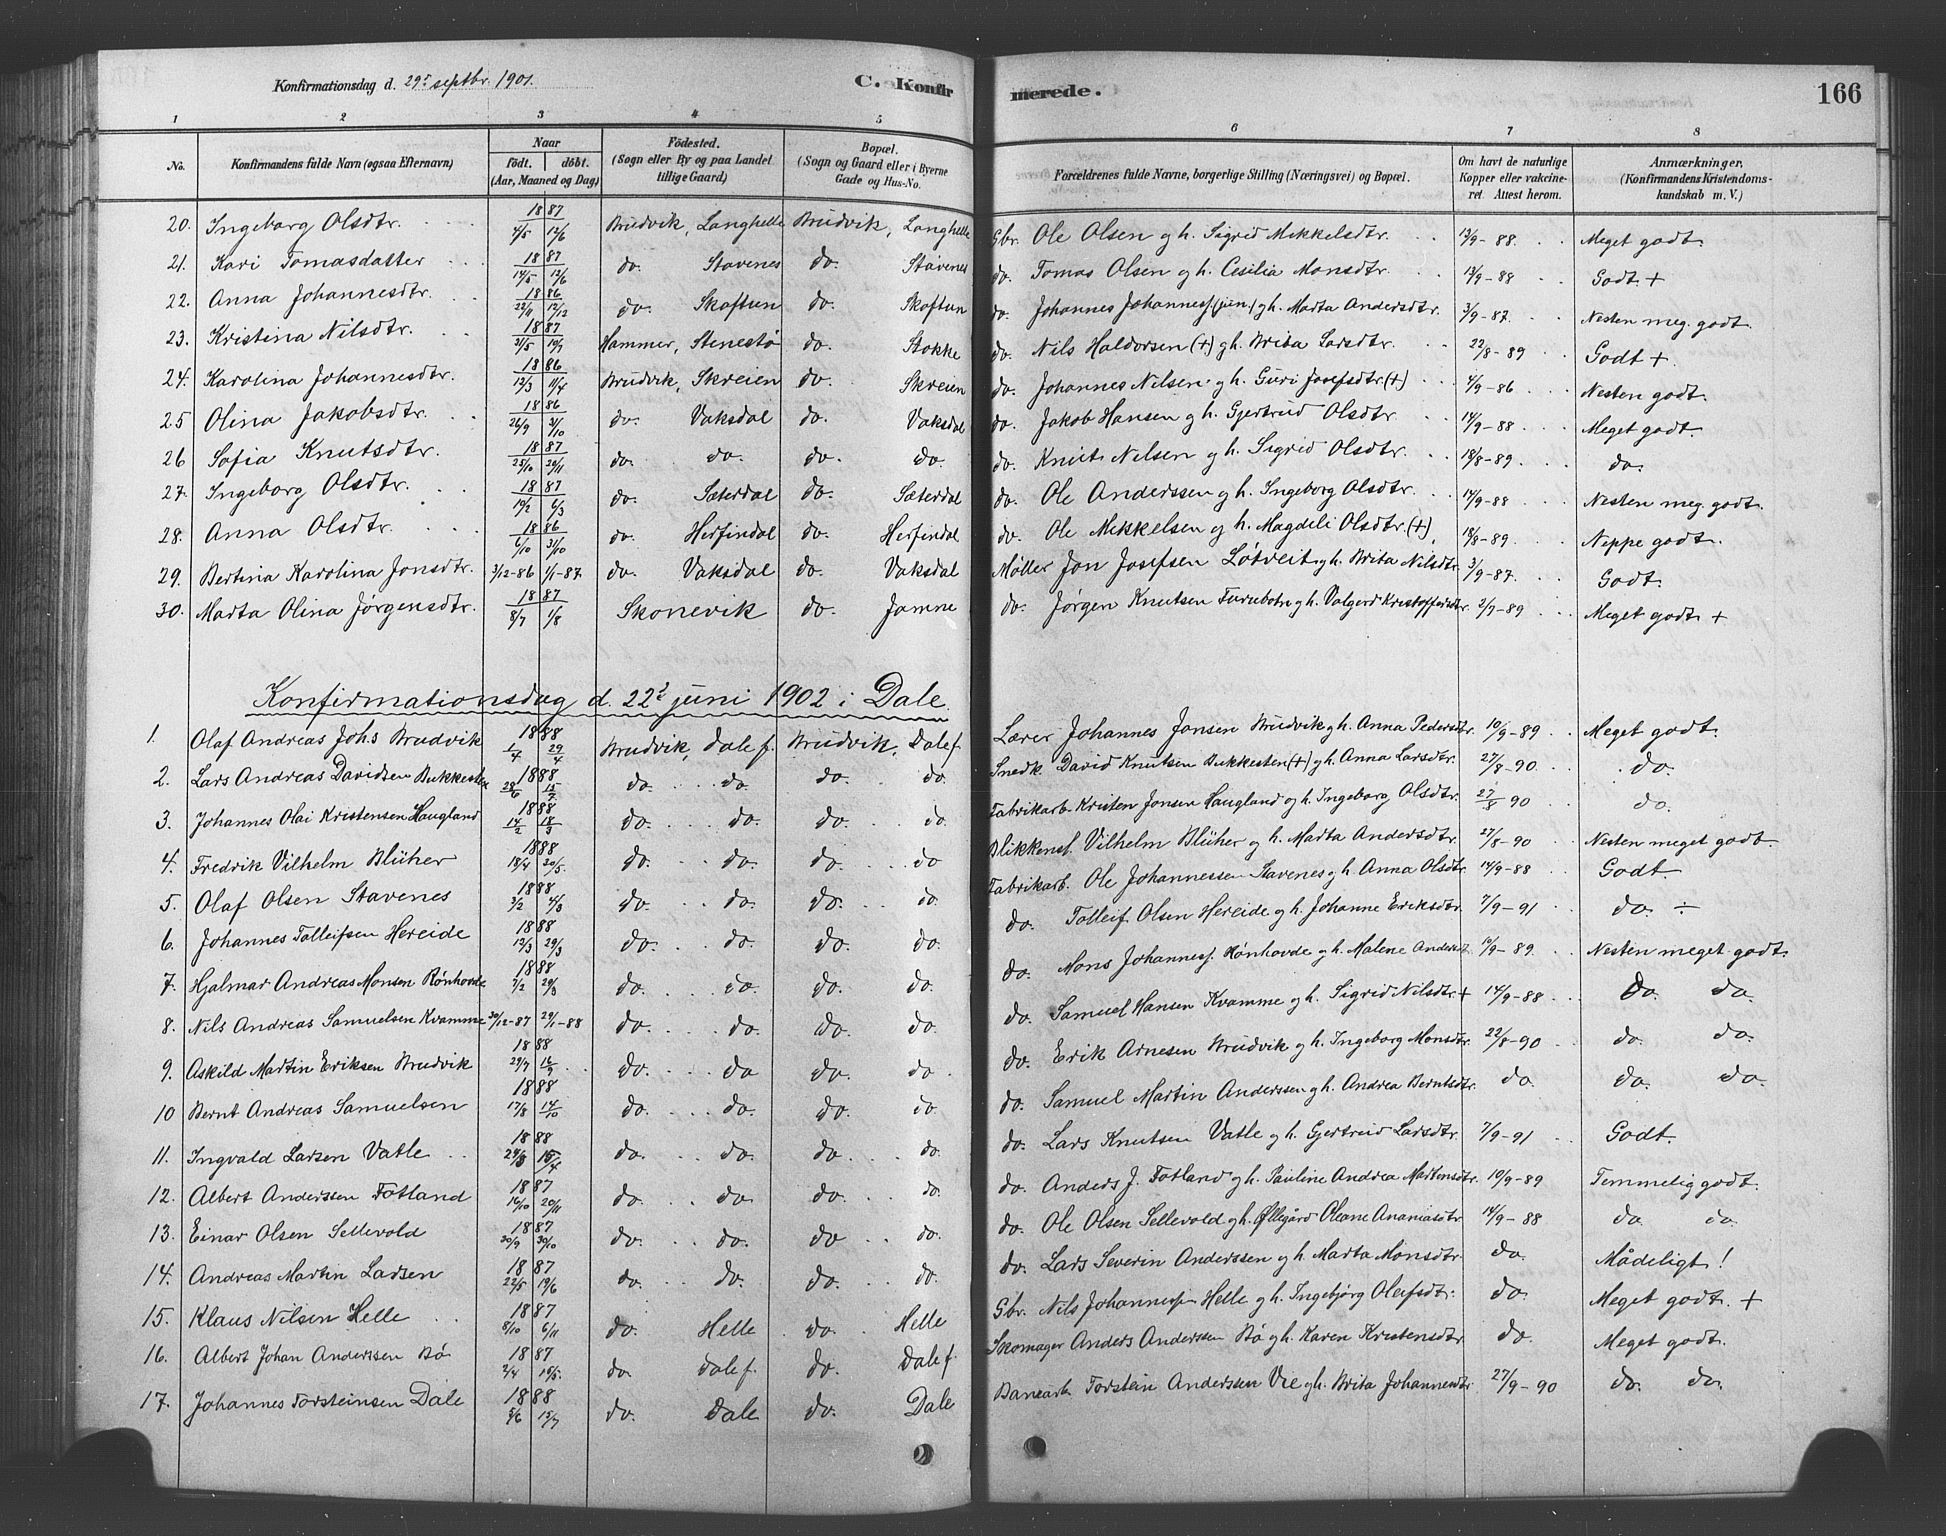 Konfirmationsdag d. 29de septbr. 1901. C. Konfirmerede. 166
1 2 3 4 5 6 7 8
No. Konfirmandens fulde Navn (ogsaa Efternavn) Naar født. døbt. (Aar, Maaned og Dag) Fødested. (Sogn eller By og paa Landet tillige Gaard) Bopæl. (Sogn og Gaard eller i Byerne Gade og Hus-No. Forældrenes fulde Navne, borgerlige Stilling (Næringsvei) og Bopæl. Om havt de naturlige Kopper eller vakcineret. Attest herom. Anmærkninger. (Konfirmandens Kristendomskundskab m. V.)
20. Ingeborg Olsdtr. 1887 4/5 12/6 Brudvik, Langhelle Brudvik, Langhelle Gbr. Ole Olsen og h. Sigrid Mikkelsdtr. 13/9-88. Meget godt.
21. Kari Tomasdatter 1887 14/5 12/6 do. Stavenes do. Stavenes do. Tomas Olsen og h. Cesilia Monsdtr. 13/9-88 Godt +
22. Anna Johannesdtr. 1886 22/11 12/12 do. Skoftun do. Skoftun do. Johannes Johanness. (jun.) og h. Marta Andersdtr. 3/9-87. Nesten meg. godt.
23. Kristina Nilsdtr. 1887 31/5 10/7 Hammer, Stenestø do. Stokke do. Nils Haldorsen (+) og h. Brita Larsdtr. 22/8-89 Godt +
24. Karolina Johannesdtr. 1886 12/3 11/4 Brudvik, Skreien do. Skreien do. Johannes Nilsen og h. Guri Josefsdtr. (+) 4/9-86 Nesten godt.
25 Olina Jakobsdtr. 1886 26/9 31/10 do. Vaksdal do. Vaksdal do. Jakob Hansen og h. Gjertrud Olsdtr. 14/9-88 Meget godt.
26 Sofia Knutsdtr. 1887 25/10 20/11 do. do. do. do. do. Knut Nilsen og h. Sigrid Olsdtr. 18/8-89 do.
27. Ingeborg Olsdtr. 1887 10/2 6/3 do. Sæterdal do. Sæterdal do. Ole Anderssen og h. Ingeborg Olsdtr. 14/9-88 Nesten meg. godt.
28. Anna Olsdtr. 1886 6/10 31/10 do. Herfindal do. Herfindal do. Ole Mikkelsen og h. Magdeli Olsdtr. (+), 18/8-89. Neppe godt.
29. Bertina Karolina Jonsdtr. 3/12-86 1/1-87. do. Vaksdal do. Vaksdal Møller Jon Josefsen Løtveit og h. Brita Nilsdtr. 3/9-87. Godt.
30. Marta Olina Jørgensdtr. 1887 8/7 1/8 Skonevik do. Jamne do. Jørgen Knutsen og h. Valgerd Kristoffersdtr. 2/9-89 Meget godt. +
Konfirmationsdag d. 22de juni 1902 i Dale.
1. Olaf Andreas Johs Brudvik 1888 1/4 29/4 Brudvik, Dale f. Brudvik, Dale f. Lærer Johannes Jonsen Brudvik og h. Anna Pedersdtr. 10/9-89 Meget godt.
2. Lars Andreas Davidsen Bukkesten 1888 28/6 15/7 do. do. do. do. Snedk. David Knutsen Bukkesten (+) og h. Anna Larsdtr. 27/8-90 do.
3. Johannes Olai Kristensen Haugland 1888 14/2 18/3 do. do. do. do. Fabrikarb. Kristen Jonsen Haugland og h. Ingeborg Olsdtr. 27/8 90 do.
4. Fredrik Vilhelm Blüher 1888 18/4 20/5. do. do. do. do Blikkensl. Vilhelm Blüher og h. Marta Andersdtr. 27/8-90 Nesten meget godt.
5. Olaf Olsen Stavenes 1888 3/2 4/3 do. do. do. do. Fabrikarb. Ole Johannessen Stavenes og h. Anna Olsdtr. 14/9-88 Godt.
6. Johannes Tolleifsen Hereide 1888 12/3 29/3 do. do. do. do. do. Tolleif Olsen Hereide og h. Johanne Eriksdtr. 7/9-91 do. ÷
7. Hjalmar Andreas Monsen Rønhovde 1888 7/2 29/3 do. do. do. do. do. Mons Johanness. Rønhovde og h. Malene Andersdt. 10/9-89 Nesten meget godt.
8. Nils Andreas Samuelsen Kvamme 30/12-87 29/1-88 do. do. do. do. do. Samuel Hansen Kvamme og h. Sigrid Nilsdtr + 14/9-88 do. do.
9. Askild Martin Eriksen Brudvik 1888 29/7 16/9 do. do do. do. do. Erik Arnesen Brudvik og h. Ingeborg Monsdtr. 22/8-90 do. do.
10 Bernt Andreas Samuelsen 1888 17/8 14/10 do. do. do. do. do. Samuel Martin Anderssen og h. Andrea Berntsdtr. do. do. do.
11. Ingvald Larsen Vatle 1888 15/4 do. do. do. do. do. Lars Knutsen Vatle og h. Gjertrud Larsdtr. 7/9-91 Godt.
12. Albert Anderssen Fotland 1887 16/10 20/11 do. do. do. do. do. Anders J. Fotland og h. Pauline Andrea Martensdtr. 10/9-89 Temmelig godt.
13. Einar Olsen Sellevold 1887 30/9 30/10 do. do. do do. do. Ole Olsen Sellevold og h. Øllegård Oleane Ananiasdtr 14/9-88 do do.
14. Andreas Martin Larsen 1887 22/5 19/6 do. do. do. do. do. Lars Severin Anderssen og h. Marta Monsdtr. do. Mådeligt!
15. Klaus Nilsen Helle 1887 8/10 6/11 do. Helle do. Helle Gbr. Nils Johannessen Helle og h. Ingebjørg Olafsdtr. do. Meget godt. +
16. Albert Johan Anderssen Bø 1887 2/4 15/5. do. Dale f. do. Dale f. Skomager Anders Anderssen Bø og h. Karen Kristensdtr. do. Meget godt.
17. Johannes Torsteinsen Dale 1888 5/6 15/7 do. Dale do. Dale Banearb. Torstein Anderssen Vie og h. Brita Johannesdtr 27/9-90 do. do.